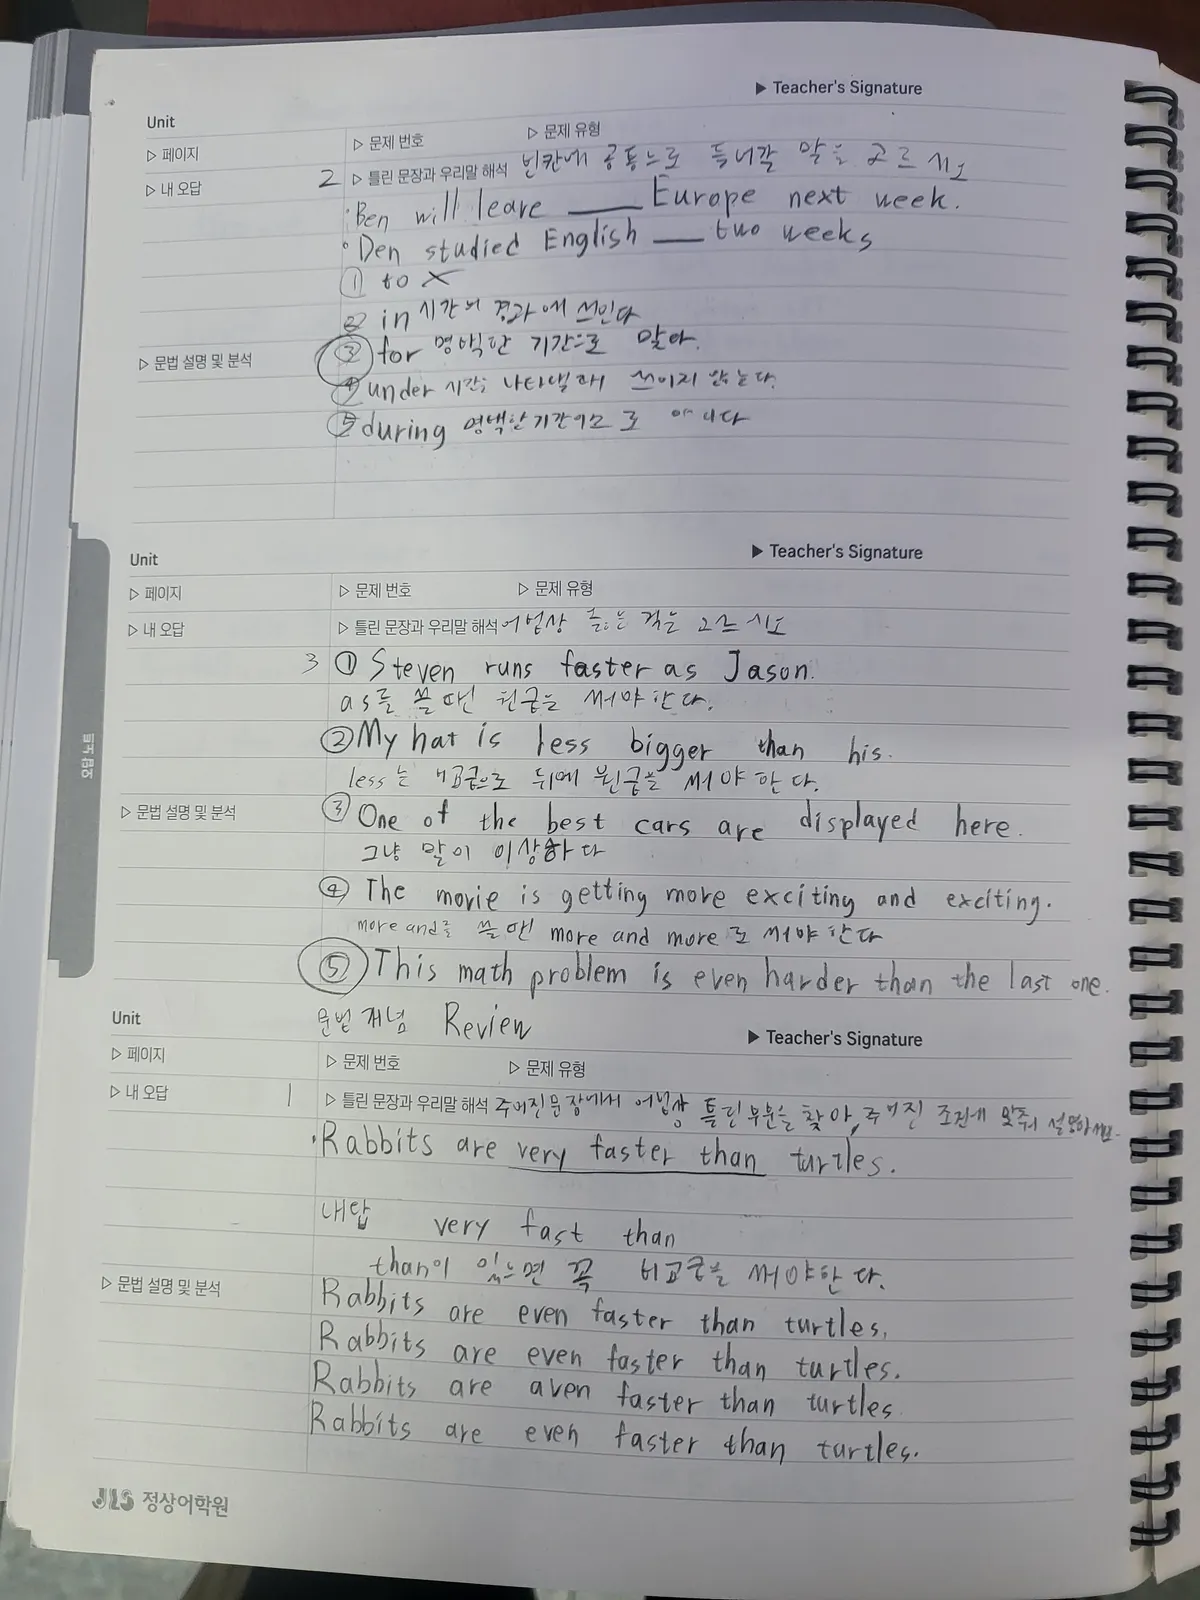 ▶ Teacher's Signature
Unit
▷ 페이지 ▷ 문제 번호 ▷ 문제 유형
▷ 내 오답 2 ▷ 틀린 문장과 우리말 해석 빈칸에 공통으로 들어갈 말을 고르시오
·Ben will leave ___ Europe next week.
·Den studied English ___ two weeks
① to X
② in 시간의 경과에 쓰인다
▷ 문법 설명 및 분석 ③ for 명확한 기간으로 맞아.
④ under 시간을 나타낼때 쓰이지 않는다.
⑤ during 명백한 기간이므로 아니다
Unit ▶ Teacher's Signature
▷ 페이지 ▷ 문제 번호 ▷ 문제 유형
▷ 내 오답 ▷ 틀린 문장과 우리말 해석 어법상 옳은 것은 고르시오
3 ① Steven runs faster as Jason.
as를 쓸 땐 원급을 써야 한다.
② My hat is less bigger than his.
오답 노트
less는 비교급으로 뒤에 원급을 써야 한다.
▷ 문법 설명 및 분석 ③ One of the best cars are displayed here.
그냥 말이 이상하다
④ The movie is getting more exciting and exciting.
more and를 쓸 땐 more and more로 써야 한다
⑤ This math problem is even harder than the last one.
Unit 문법 개념 Review ▶ Teacher's Signature
▷ 페이지 ▷ 문제 번호 ▷ 문제 유형
▷ 내 오답 1 ▷ 틀린 문장과 우리말 해석 주어진 문장에서 어법상 틀린 부분을 찾아, 주어진 조건에 맞춰
·Rabbits are very faster than turtles.
내답 very fast than
than이 있으면 꼭 비교급을 써야한다.
▷ 문법 설명 및 분석 Rabbits are even faster than turtles.
Rabbits are even faster than turtles.
Rabbits are aven faster than turtles
Rabbits are even faster than turtles.
JLS 정상어학원